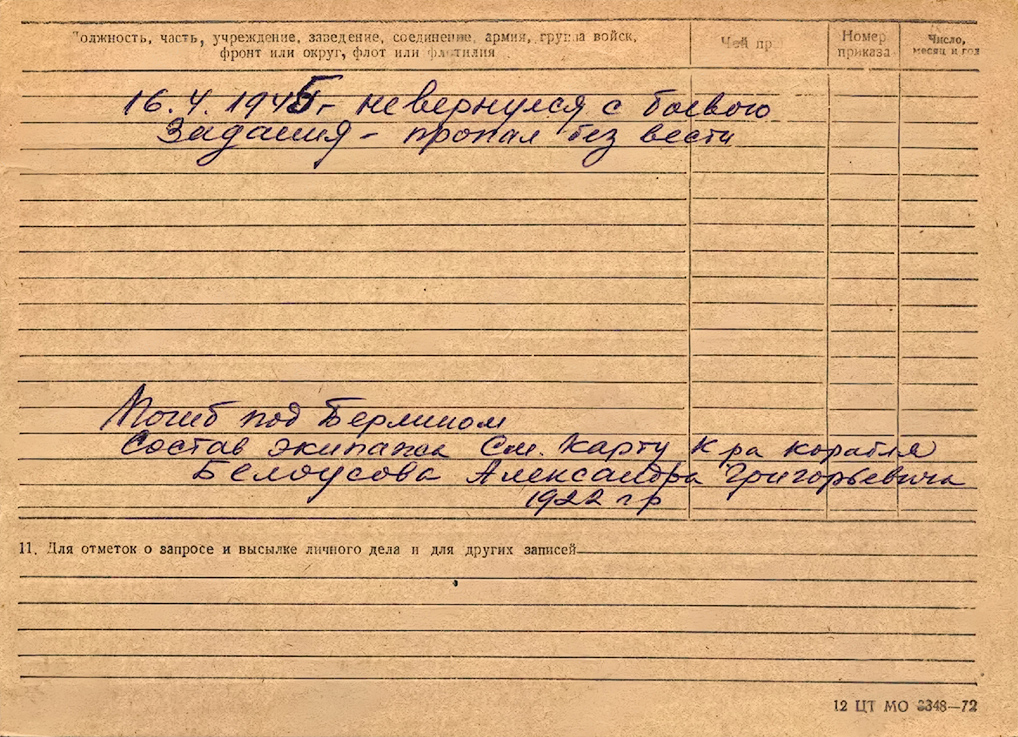 Должность, часть, учреждение, заведение, соединение, армия, группа войск,
фронт или округ, флот или флотилия
Чей пр
Номер
приказа
Число,
месяц и год
16.4.1945г- не вернулся с боевого
Задания - пропал без вести
Погиб под Берлином
Состав экипажа См. Карту К-ра корабля
Белоусова Александра Григорьевича
1922 г р
11. Для отметок о запросе и высылке личного дела и для других записей
12 ЦТ МО 3348—72